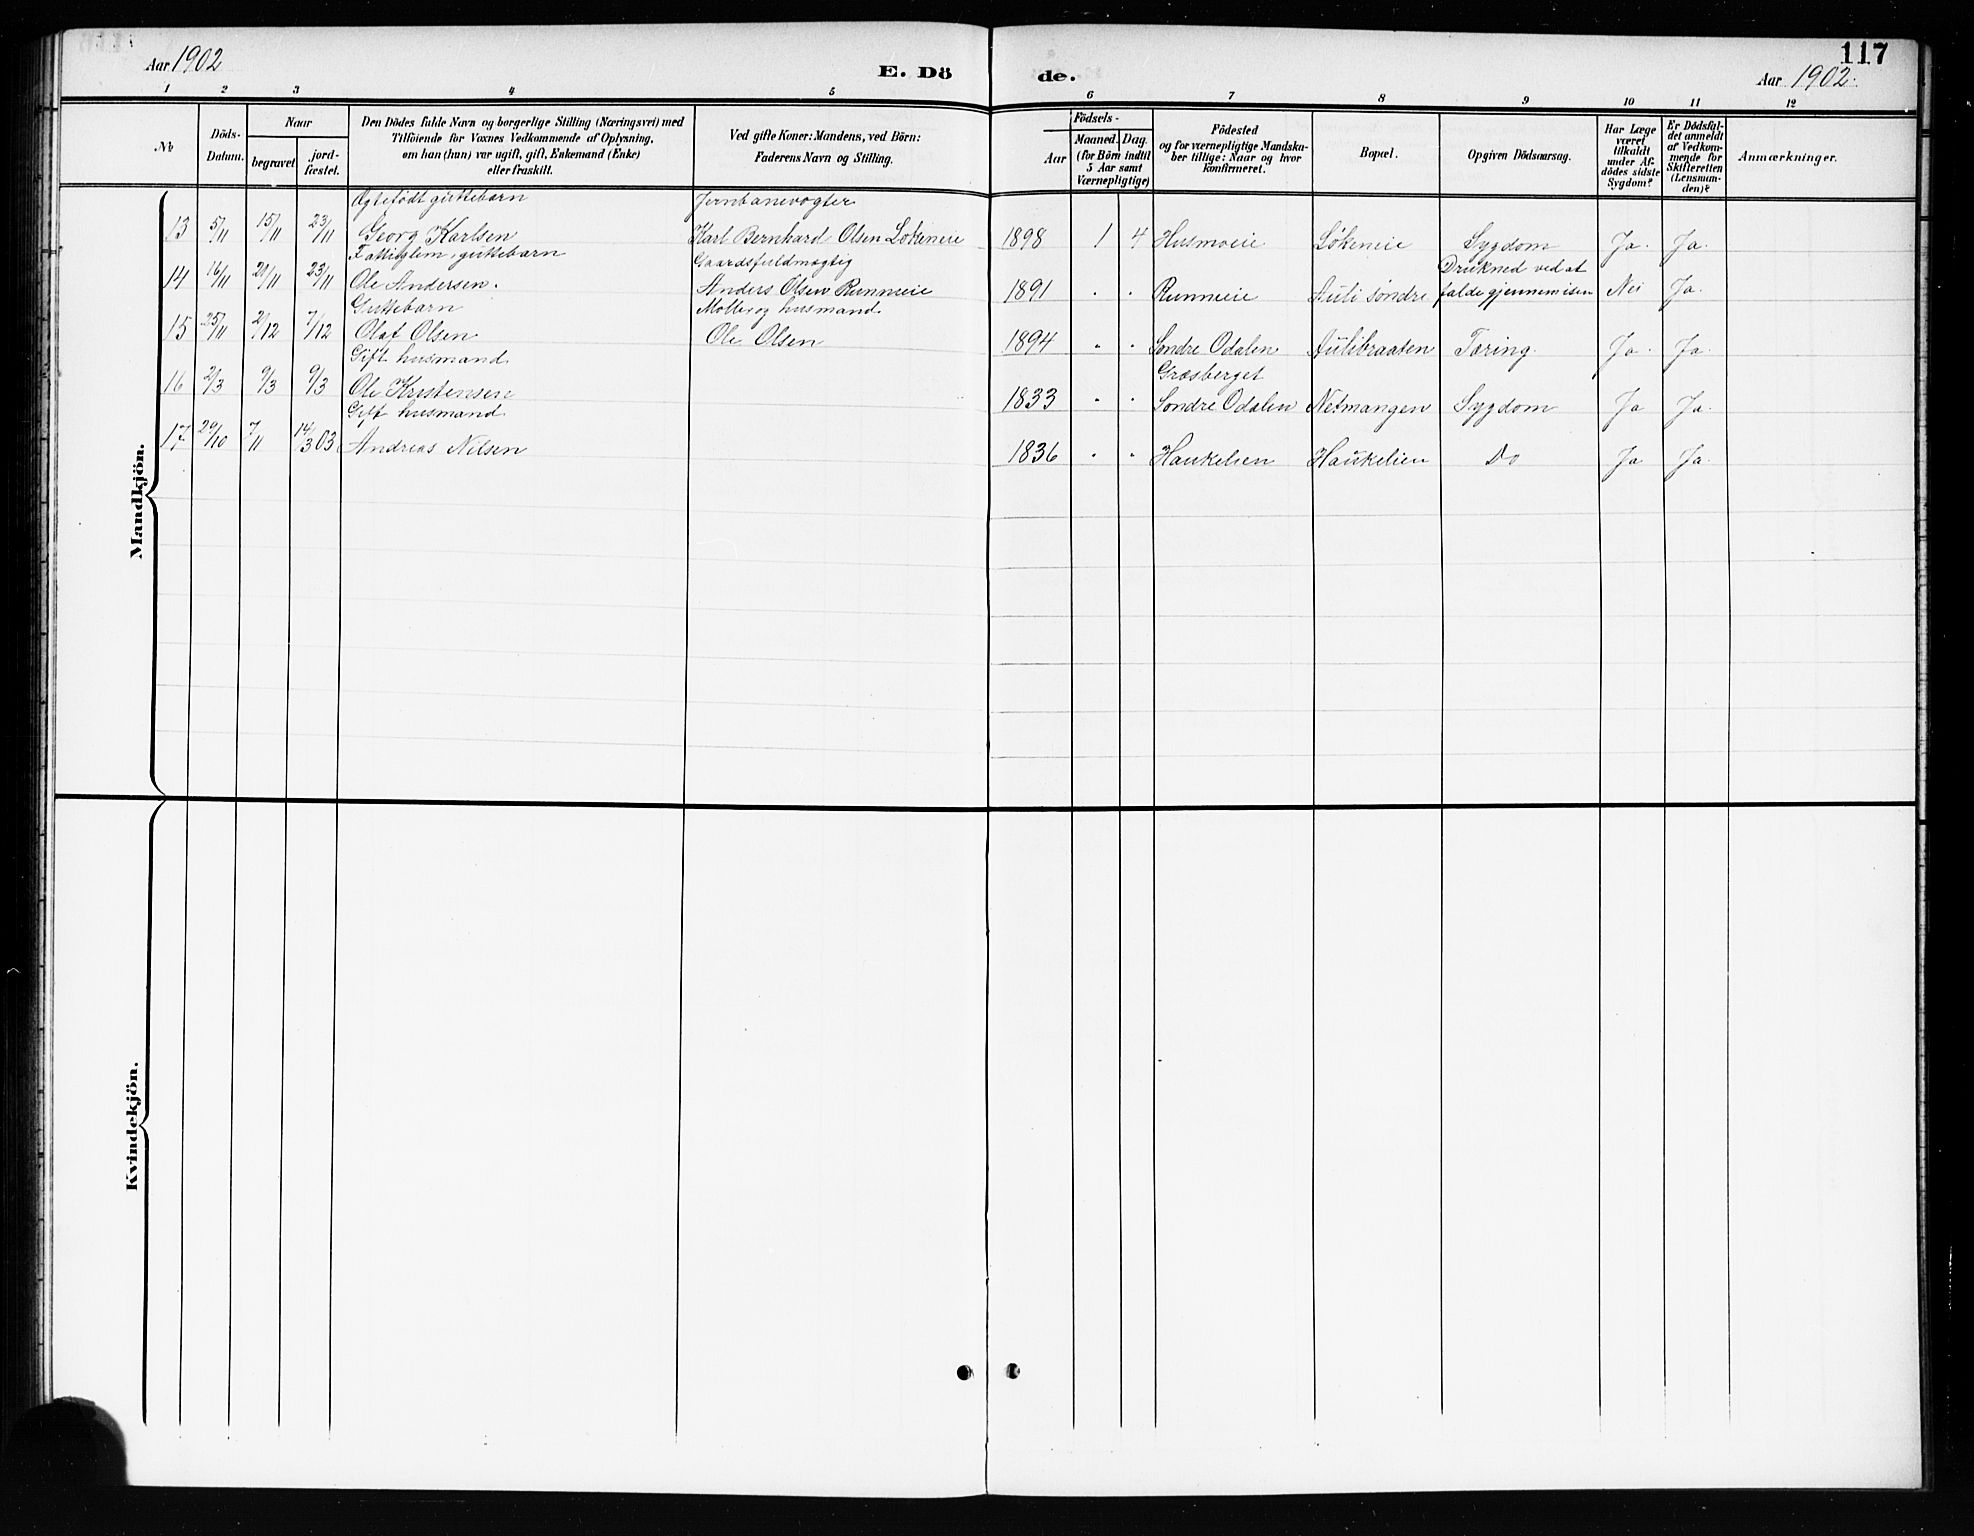 117
Aar 1902
E. Dö de.
Aar 1902.
1 2 3 4 5 6 7 8 9 10 11 12
№
Döds-Datum.
Naar
begravet
jord-fæstet.
Den Dödes fulde Navn og borgerlige Stilling (Næringsvei) med
Tilföiende for Voxnes Vedkommende af Oplysning,
om han (hun) var ugift, gift, Enkemand (Enke)
eller fraskilt.
Ved gifte Koner: Mandens, ved Börn:
Faderens Navn og Stilling.
Födsels-
Aar
Maaned. Dag.
(for Börn indtil
5 Aar samt
Værnepligtige)
Födested
og for værnepligtige Mandska-
ber tillige: Naar og hvor
konfirmeret.
Bopæl.
Opgiven Dödsaarsag.
Har Læge
været
tilkaldt
under Af-
dödes sidste
Sygdom?
Er Dödsfal-
det anmeldt
af Vedkom-
mende for
Skifteretten
(Lensman-
den)?
Anmærkninger.
Mandkjön.
Ægtefödt guttebarn Jernbanevogter
13 5/11 15/11 23/11 Georg Karlsen Karl Bernhard Olsen Lökeneie 1898 1 4 Husmoeie Lökeneie Sygdom Ja. Ja.
Fattiglem, guttebarn Gaardsfuldmægtig Drukned ved at
14 16/11 21/11 23/11 Ole Andersen. Anders Olsen Runneie 1891 " " Runneie Auli söndre falde gjennem isen Nei Ja.
Guttebarn Möller og husmand.
15 25/11 2/12 7/12 Olaf Olsen Ole Olsen 1894 " " Söndre Odalen Aulibraaten Tæring. Ja. Ja.
Gift husmand Græsberget
16 2/3 9/3 9/3 Ole Kristensen 1833 " " Söndre Odalen Netmangen Sygdom Ja Ja.
Gift husmand
17 29/10 7/11 14/3 03 Andreas Nilsen 1836 " " Haukelien Haukelien Do Ja Ja.
Kvindekjön.